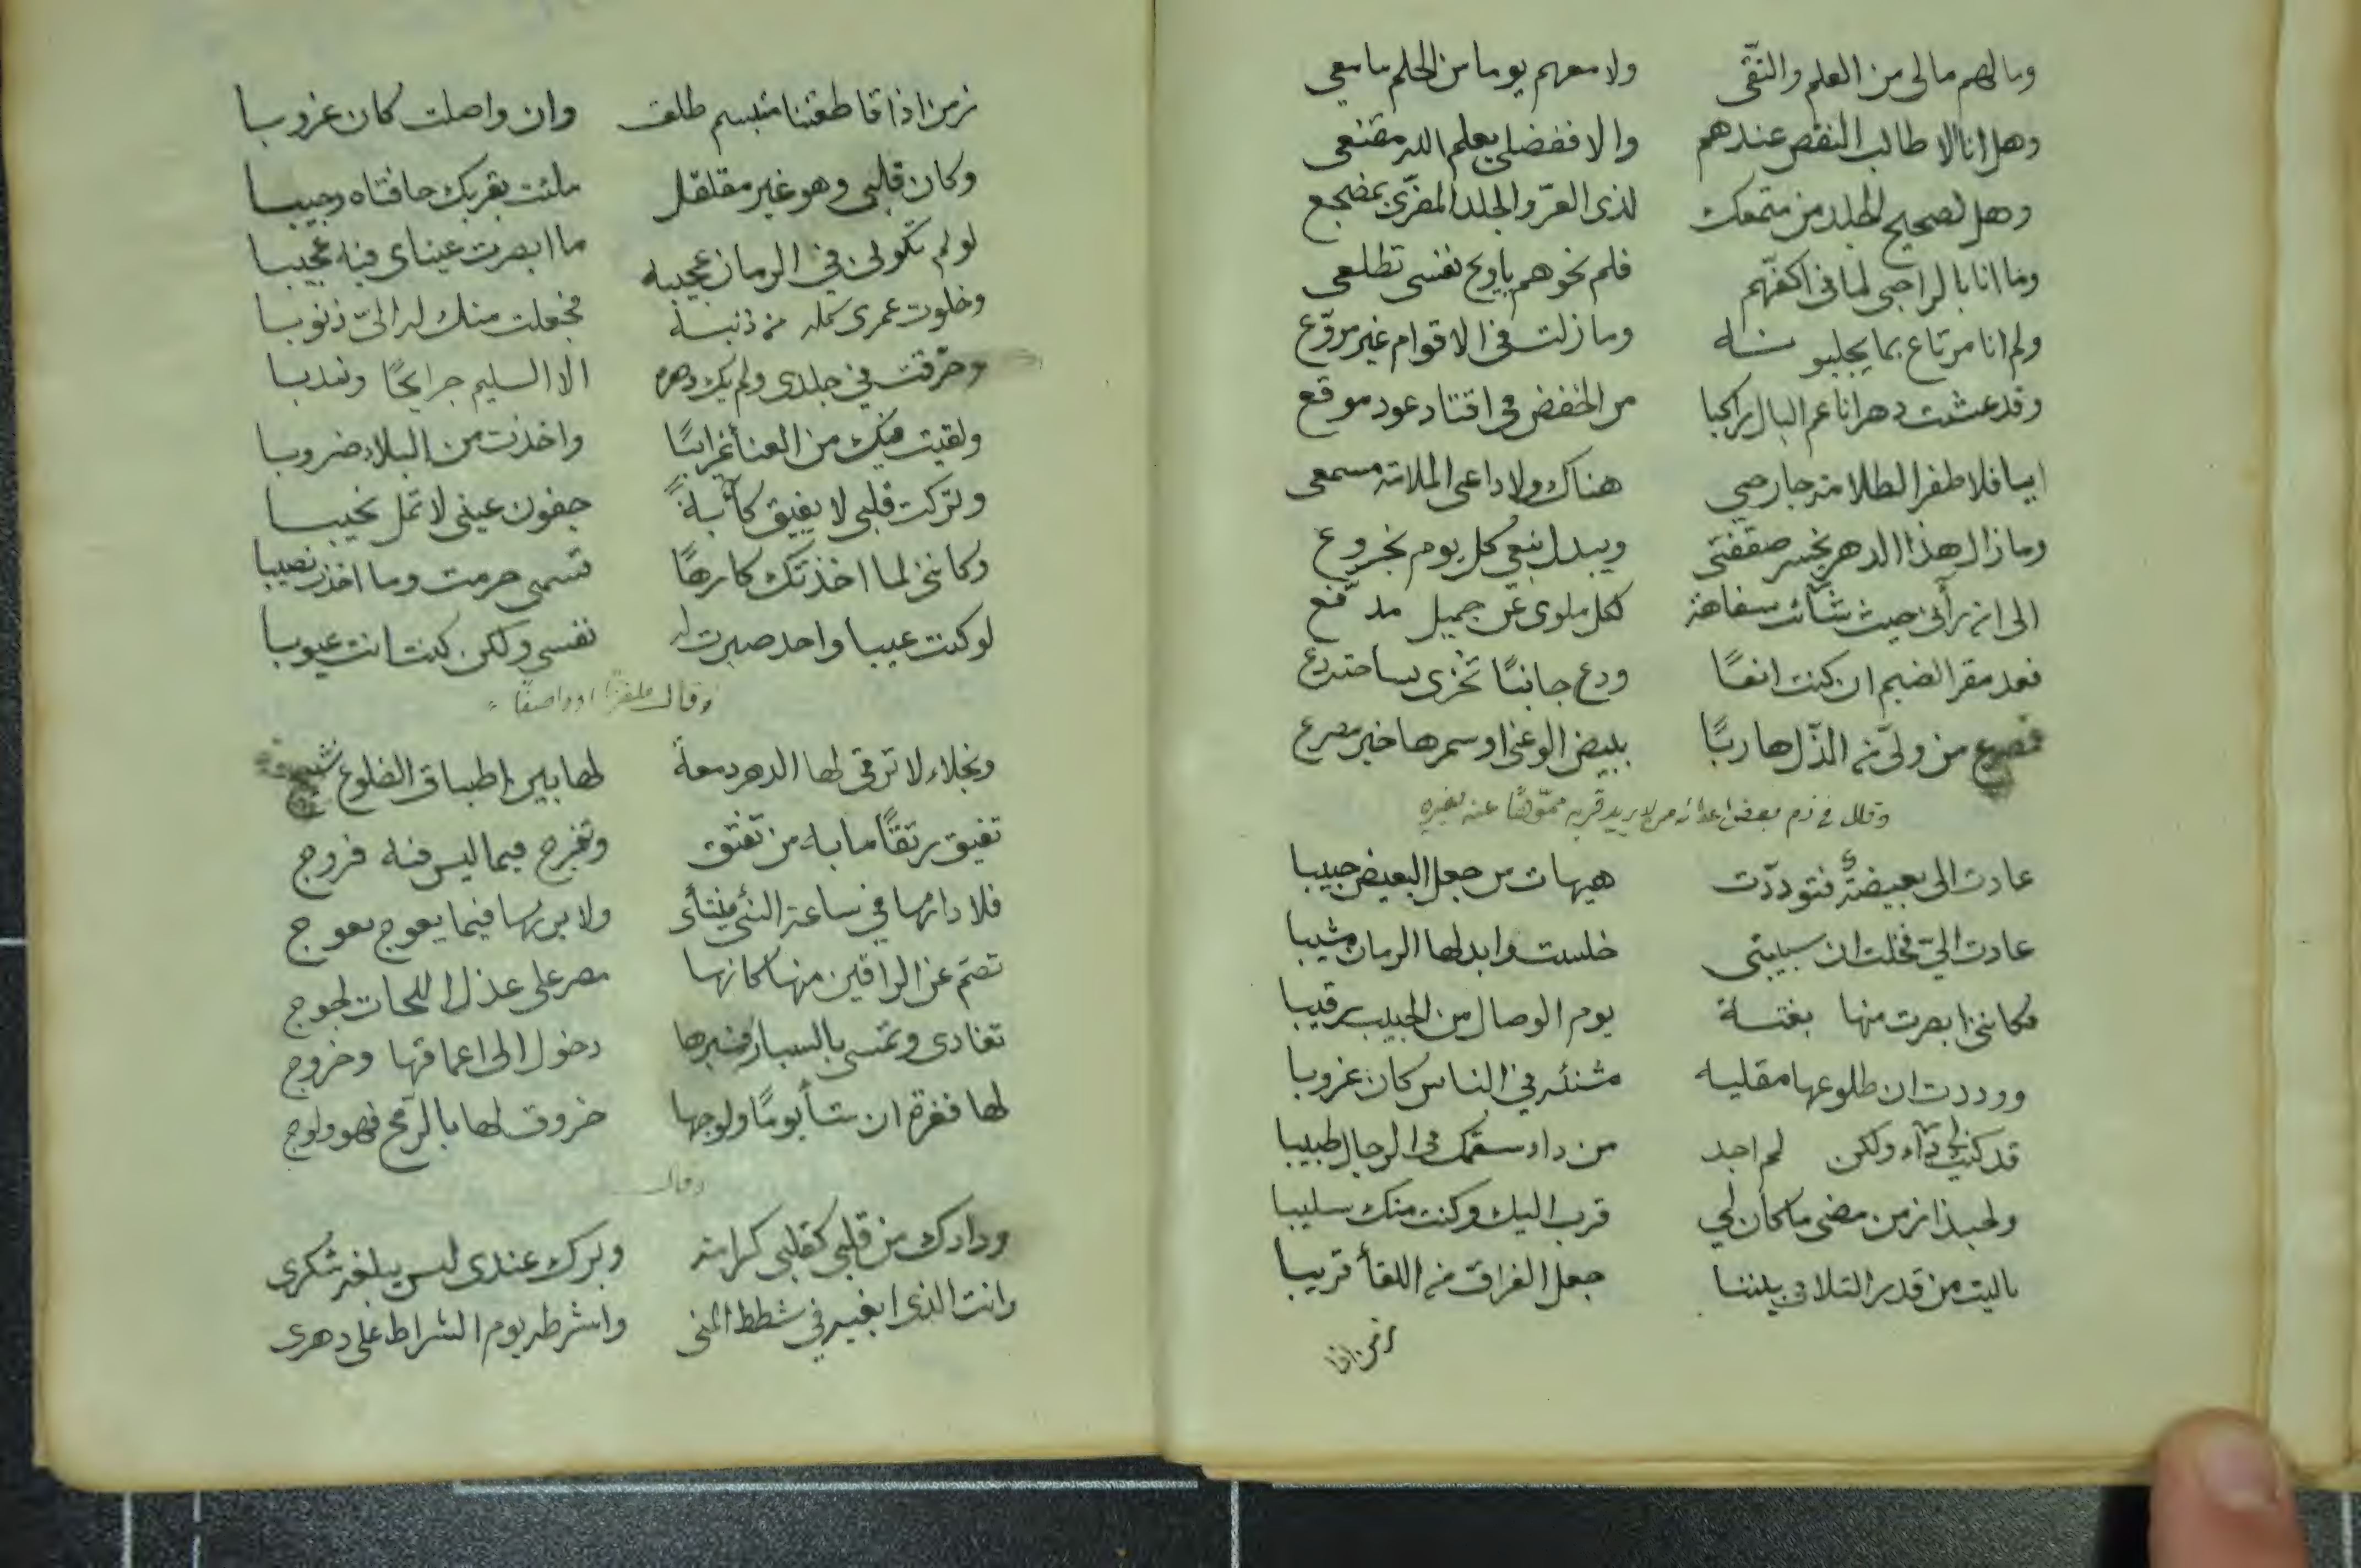 وما لهم مالى من العلم والتّقى ولا معهم يوما من الحلم ما معى
وهل انا الا طالب النقص عندهم والا ففضلى يعلم الله مقنعى
وهل لصحيح الجلد من متمعك لذى العرّ والجلد المفرّى بمضجع
وما انا بالراجى لما فى اكفّهم فلم نحوهم ياويح نفسى تطلعى
ولم انا مرتاع بما يجلبونه وما زلت فى الاقوام غير مروّع
وقد عشت دهرا ناعم البال راكبا من الخفض فى اقتاد عود موقع
ايبا فلا ظفر الظلامة جارحى هناك ولا داعى الملامة مسمعى
وما زال هذا الدهر يخسر صفقتى ويبدل نبعى كل يوم بخروع
الى ان رأنى حيث شآئت سفاهة ككل ملوى عن جميل مدفّع
فعد مقر الضيم ان كنت انفًا ودع جانبًا تخزى بساحته دع
فمصرع من ولى من الذّل هاربًا ببيض الوغى او سمرها خير مصرع
وقال فى ذم بعض اعدائه من لا يريد قربه مموّهًا عنه بغيره
عادت الى بغيضةٌ فتودّدت هيهات من جعل البغيض حبيبا
عادت الىّ فخلت ان سبيبتى خلست وابدلها الزمان مشيبا
فكاننى ابصرت منها بغتة يوم الوصال من الحبيب رقيبا
ووددت ان طلوعها مقلية مشنئه فى الناس كان غروبا
قد كنت لى دآء ولكن لم اجد من داء سقمك فى الرجال طبيبا
ولحبذا زمن مضى ما كان لى قرب اليك وكنت منك سليبا
ياليت من قدر التلاقى بيننا جعل الفراق من اللقأ قريبا
زمن اذا
زمن اذا قاطعتنا متبسم طلق وان واصلت كان غروبا
وكان قلبى وهو غير مقلقل ملئت بقربك حافتاه وجيبا
لو لم تكونى فى الزمان عجيبه ما ابصرت عيناى فيه عجيبا
وخلوت عمرى كله من ذنبه فجعلت منك له الىّ ذنوبا
وخرقت فى جلدى ولم يك دهره الا السليم جرايحًا وندبا
ولقيت فيك من العنأ غرايبًا واخذت من البلاء ضروبا
وتركت قلبى لا يفيق كآبةً جفون عينى لا تمل نحيبا
وكاننى لما اخذتك كارهًا قسمى حرمت وما اخذت نصيبا
لو كنت عيبا واحد صبرت له نفسى ولكن كنت انت عيوبا
وقال ملغزا او واصفًا
ونجلاء لا ترقى لها الدهر دمعة لها بين اطباق الضلوع نشيج
تفيق رتقًا ما به من تفتق وتفرج فيما ليس فيه فروج
فلا دارها فى ساعة النئى منتأى ولا بربها فيما يعوج يعوج
تصم عن الراقين منها كانها مصر على عذل اللحات لجوج
تغادى وتمسى بالسبار فسبرها دخول الى اعماقها وخروج
لها فغرة ان شأ يومًا ولوجها خروق لها بالرمح فهو ولوج
وقال
ودادك من قلبى كقلبى كرامة وبرك عندى ليس يبلغه شكرى
وانت الذى ابغيه فى شطط المنى واشرطه يوم الشراط على دهرى